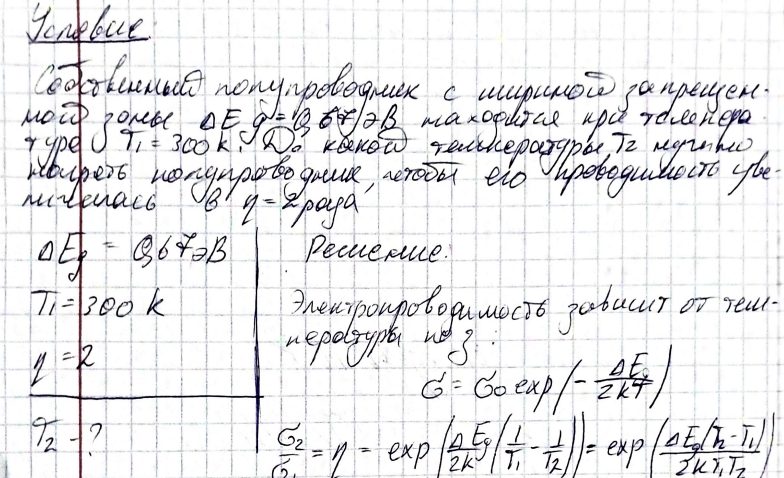 Условие.
Собственный полупроводник с шириной запрещен-
ной зоны ΔEg = 0,67 эВ находится при темпера
туре T₁ = 300 K. До какой температуры T₂ нужно
нагреть полупроводник, чтобы его проводимость уве-
личилась в η = 2 раза
ΔEg = 0,67 эВ
Решение:
T₁ = 300 K
Электропроводимость зависит от тем-
пературы по з:
η = 2
σ = σ₀ exp(-ΔEg/2kT)
T₂ - ?
σ₂/σ₁ = η = exp(ΔEg/2k(1/T₁ - 1/T₂)) = exp(ΔEg(T₂-T₁)/2kT₁T₂)